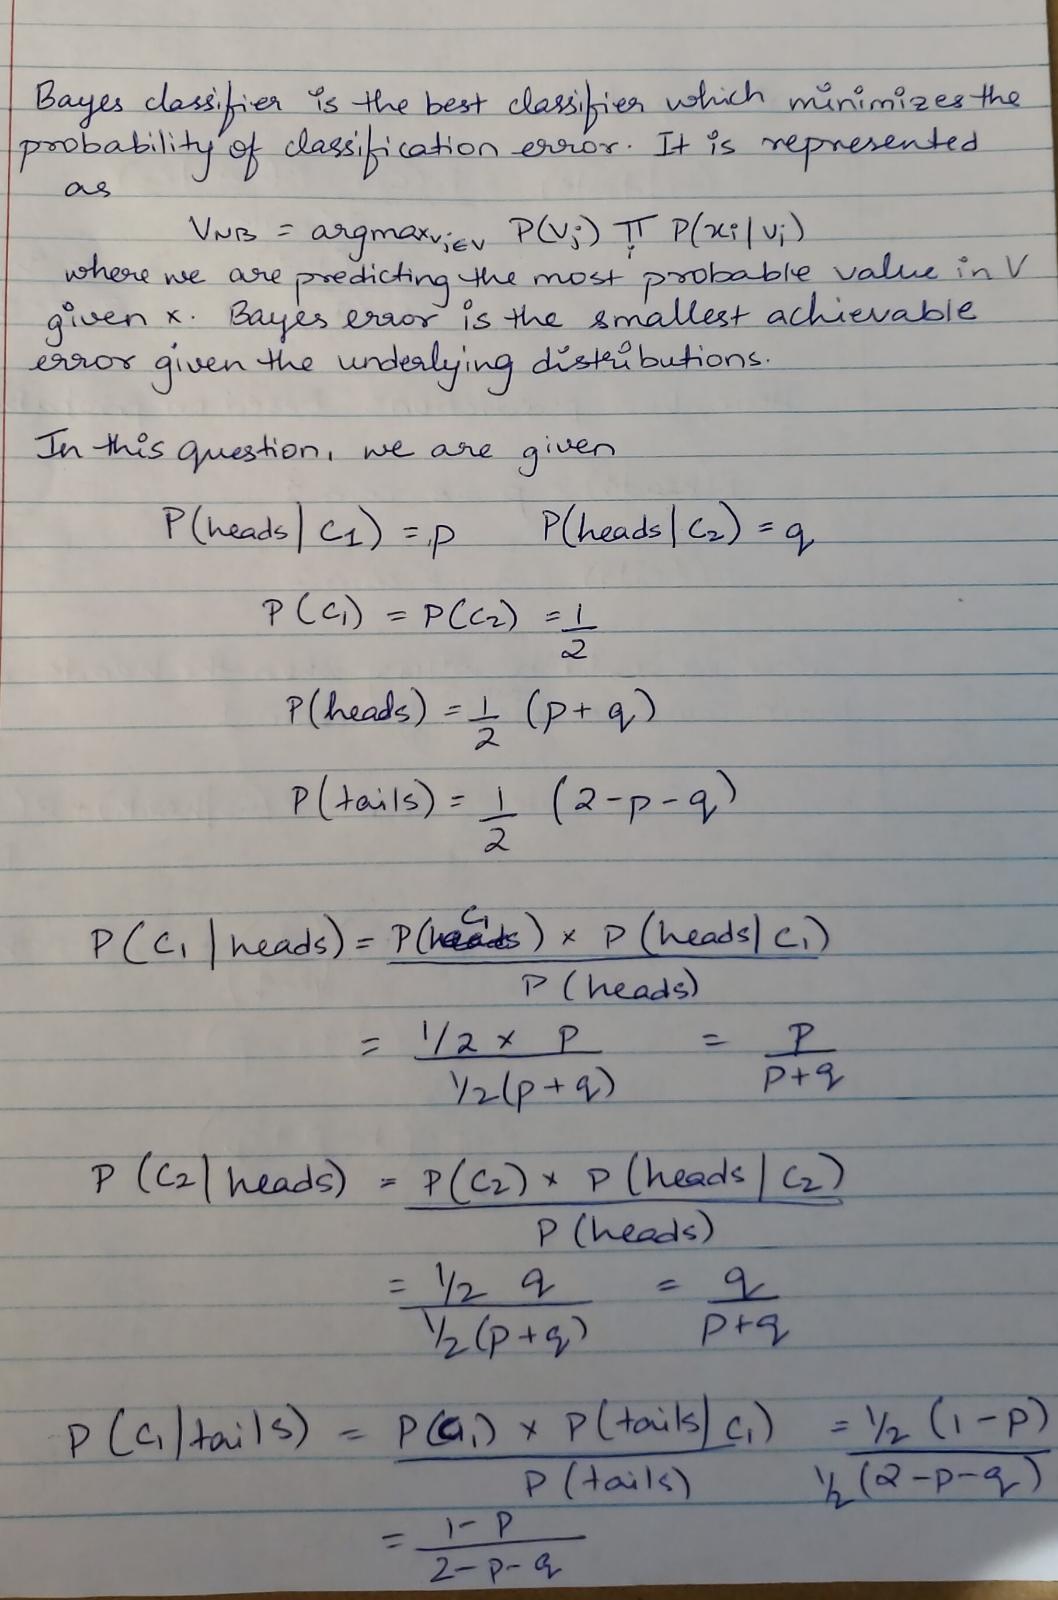 Bayes classifier is the best classifier which minimizes the
probability of classification error. It is represented
as
V_NB = argmax_{vj∈V} P(vj) ∏_i P(xi | vj)
where we are predicting the most probable value in V
given x. Bayes error is the smallest achievable
error given the underlying distributions.
In this question, we are given
P(heads | C1) = p    P(heads | C2) = q
P(C1) = P(C2) = 1/2
P(heads) = 1/2 (p+q)
P(tails) = 1/2 (2-p-q)
P(C1 | heads) = P(C1) × P(heads | C1)
P(heads)
= 1/2 × p / 1/2(p+q) = p / p+q
P(C2 | heads) = P(C2) × P(heads | C2)
P(heads)
= 1/2 q / 1/2(p+q) = q / p+q
P(C1 | tails) = P(C1) × P(tails | C1) / P(tails) = 1/2 (1-p) / 1/2 (2-p-q)
= 1-p / 2-p-q